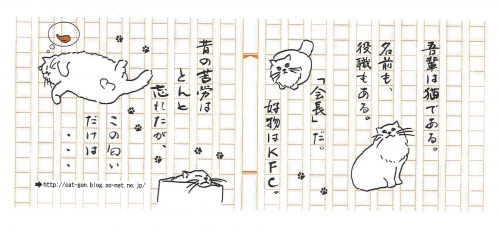 吾輩は猫である。
名前も、
役職もある。
「会長」だ。
好物はKFC。
昔の苦労は
とんと
忘れたが、
この匂い
だけは
・・・
➡http://cat-gon.blog.so-net.ne.jp/